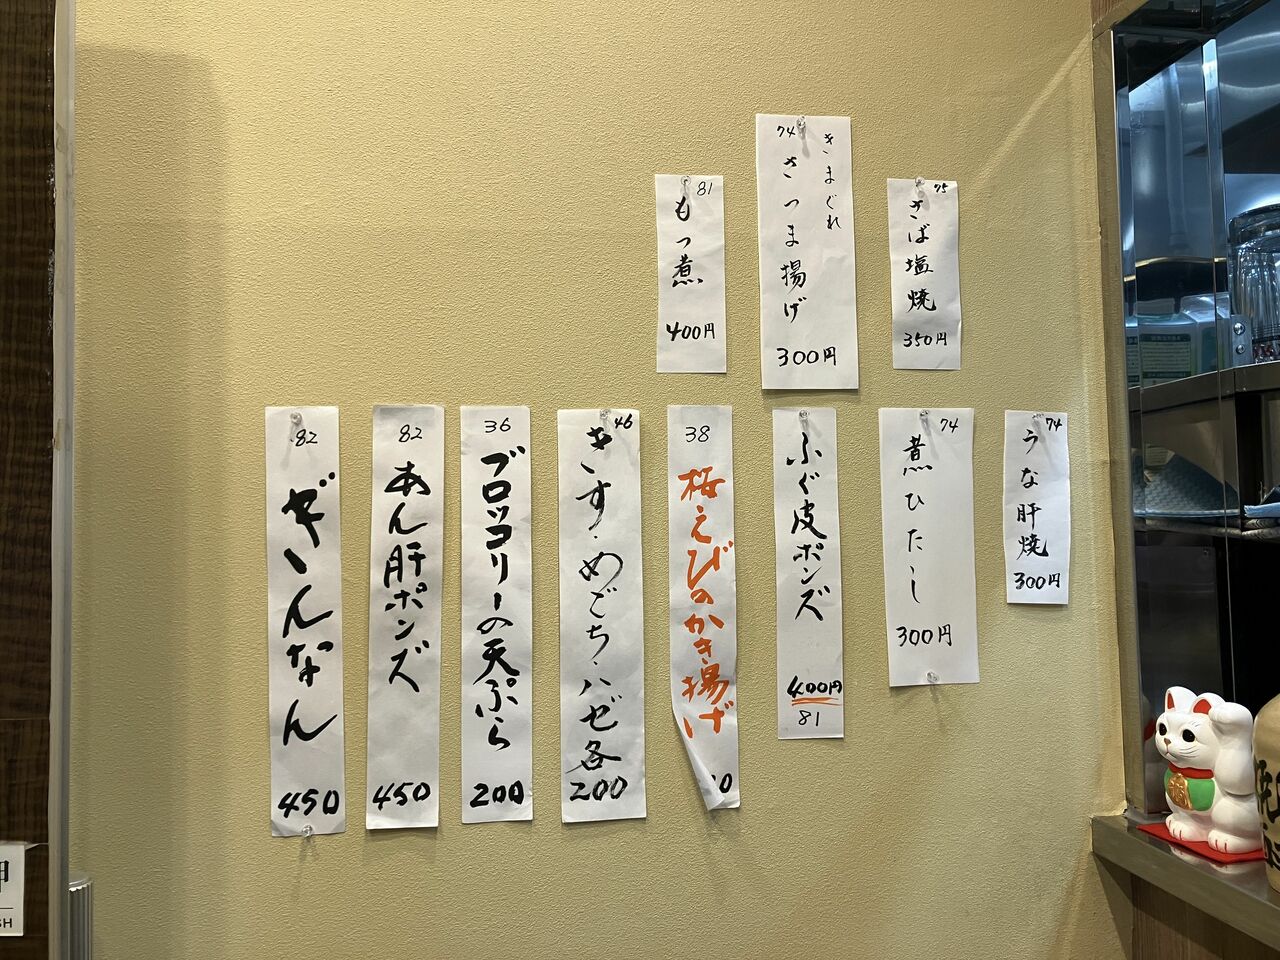 81
もつ煮
400円
きまぐれ
74
さつま揚げ
300円
75
さば塩焼
350円
82
ぎんなん
450
82
あん肝ポンズ
450
36
ブロッコリーの天ぷら
200
46
きす・めごち・ハゼ各
200
38
桜えびのかき揚げ
0
ふぐ皮ポンズ
400円
81
74
煮ひたし
300円
74
うな肝焼
300円